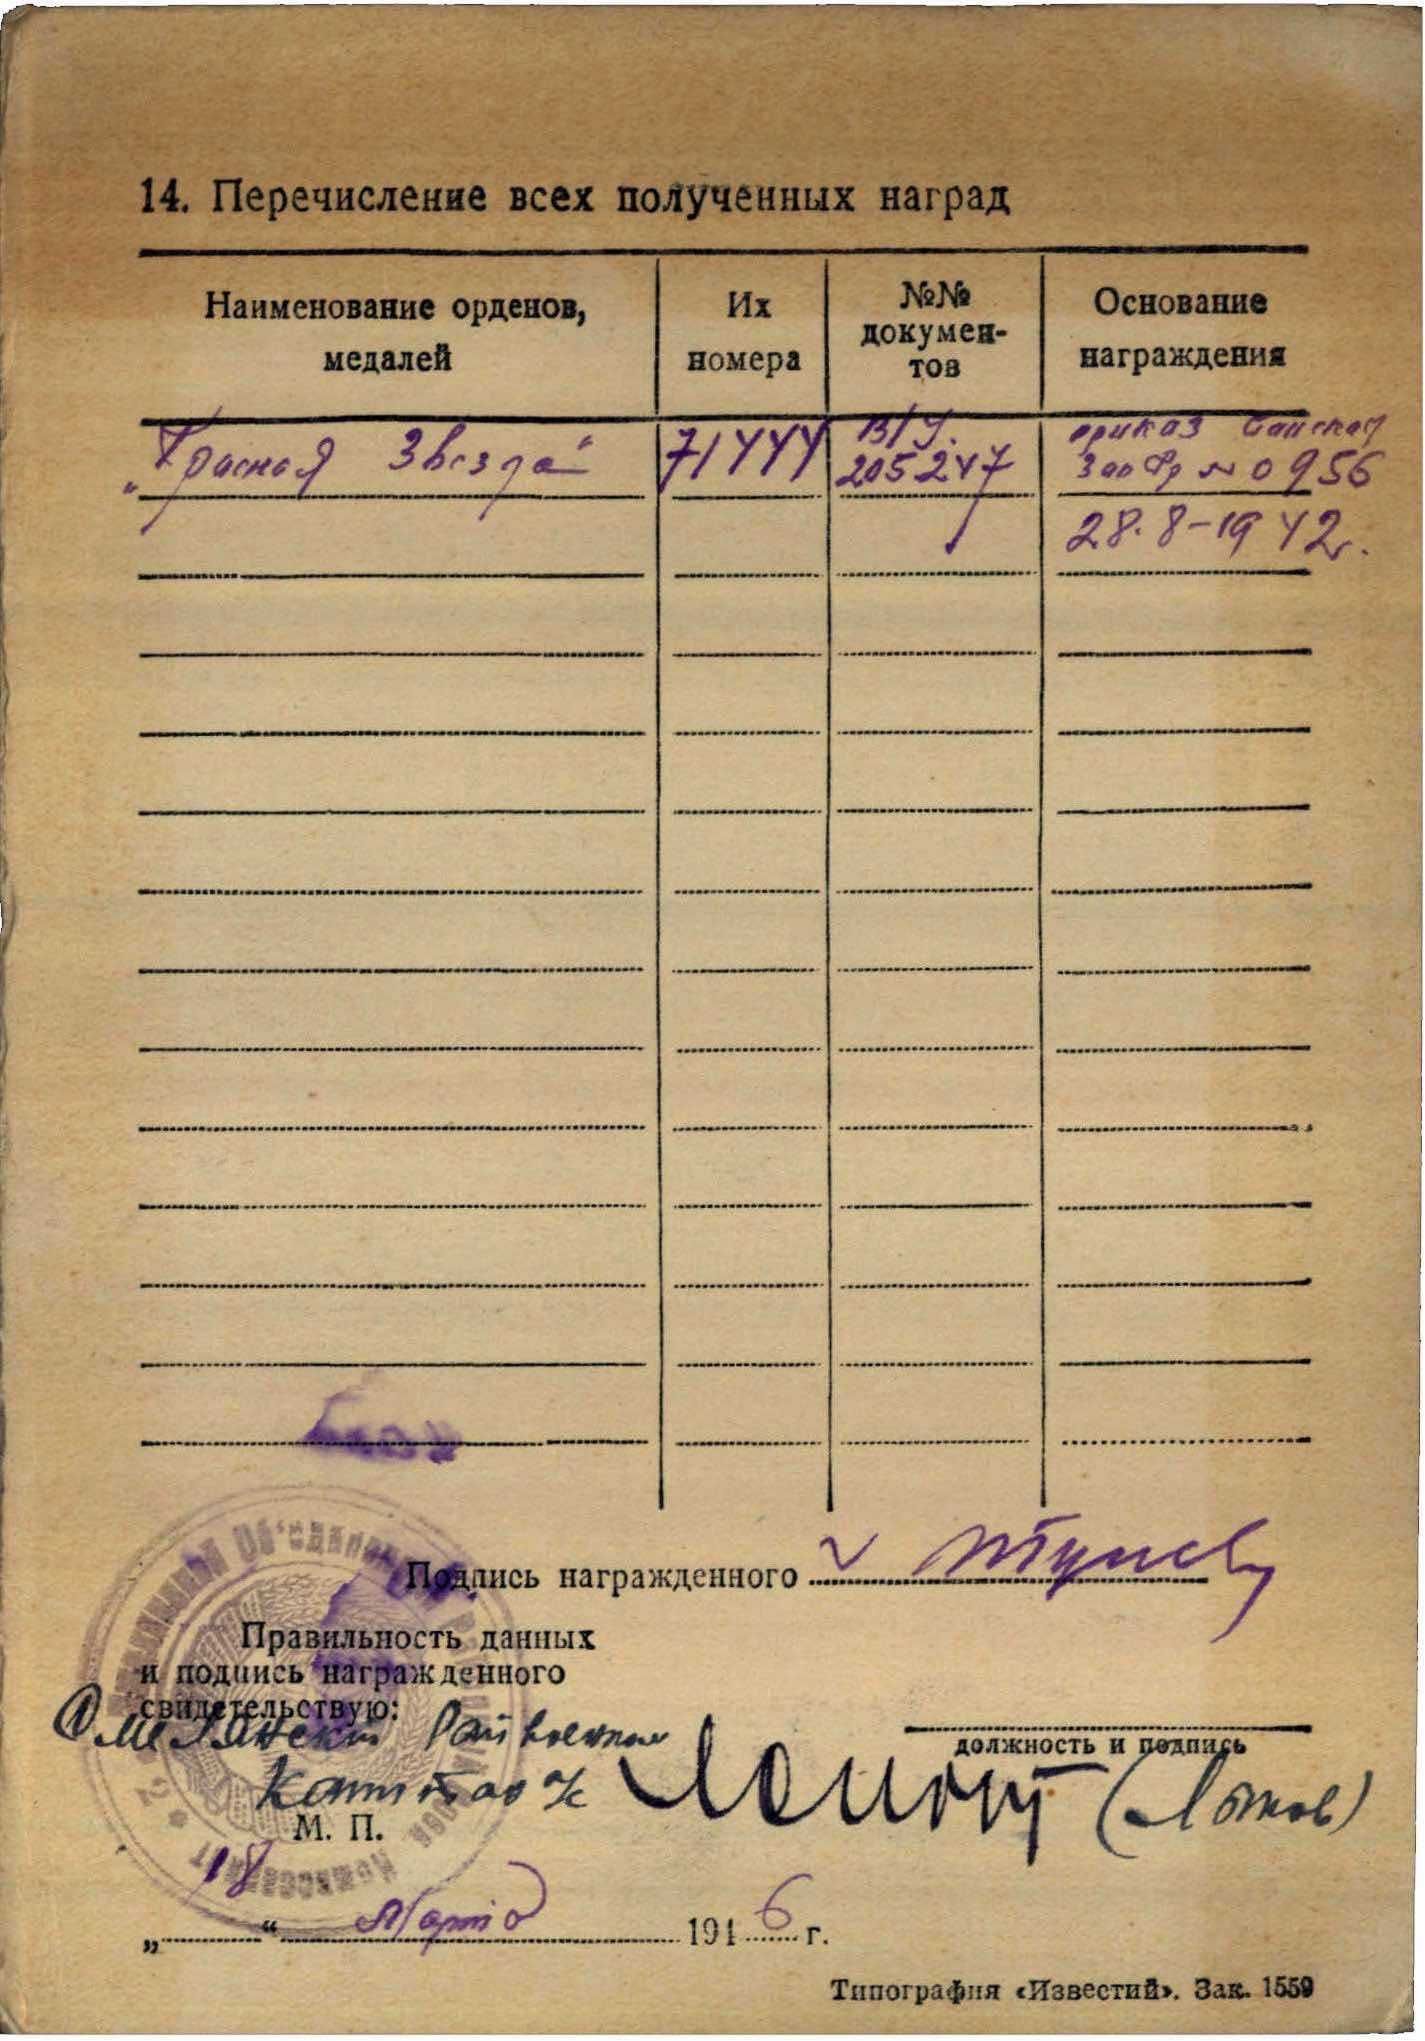 14. Перечисление всех полученных наград
Наименование орденов, медалей
Их номера
№№ докумен-тов
Основание награждения
„Красная Звезда“
71444
205247
приказ
Зап Фр № 0956
28.8-1942г.
Подпись награжденного
Правильность данных
и подпись награжденного
свидетельствую:
должность и подпись
Райвоенком
Капитан
М. П.
„18“ Марта 1946 г.
Типография «Известий». Зак. 1559